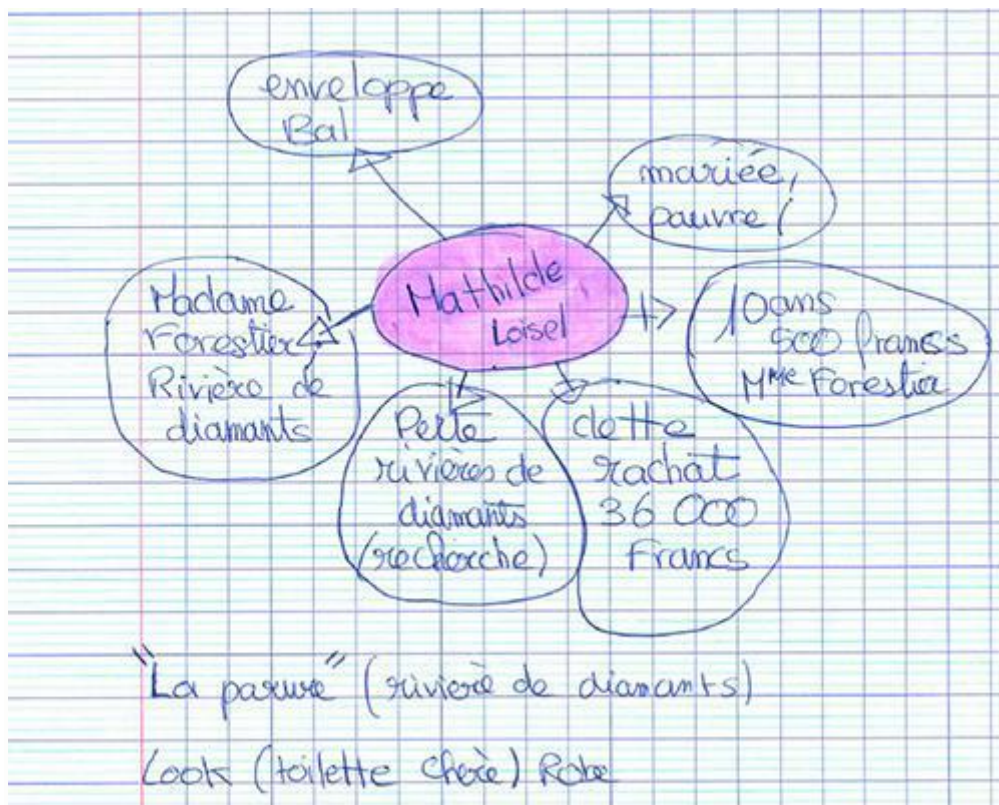 enveloppe
Bal
mariée,
pauvre
Mathilde
Loisel
Madame
Forestier
Rivière de
diamants
10 ans
500 francs
Mme Forestier
Perte
rivières de
diamants
(recherche)
dette
rachat
36 000
Francs
"La parure" (rivière de diamants)
Look (toilette chère) Robe